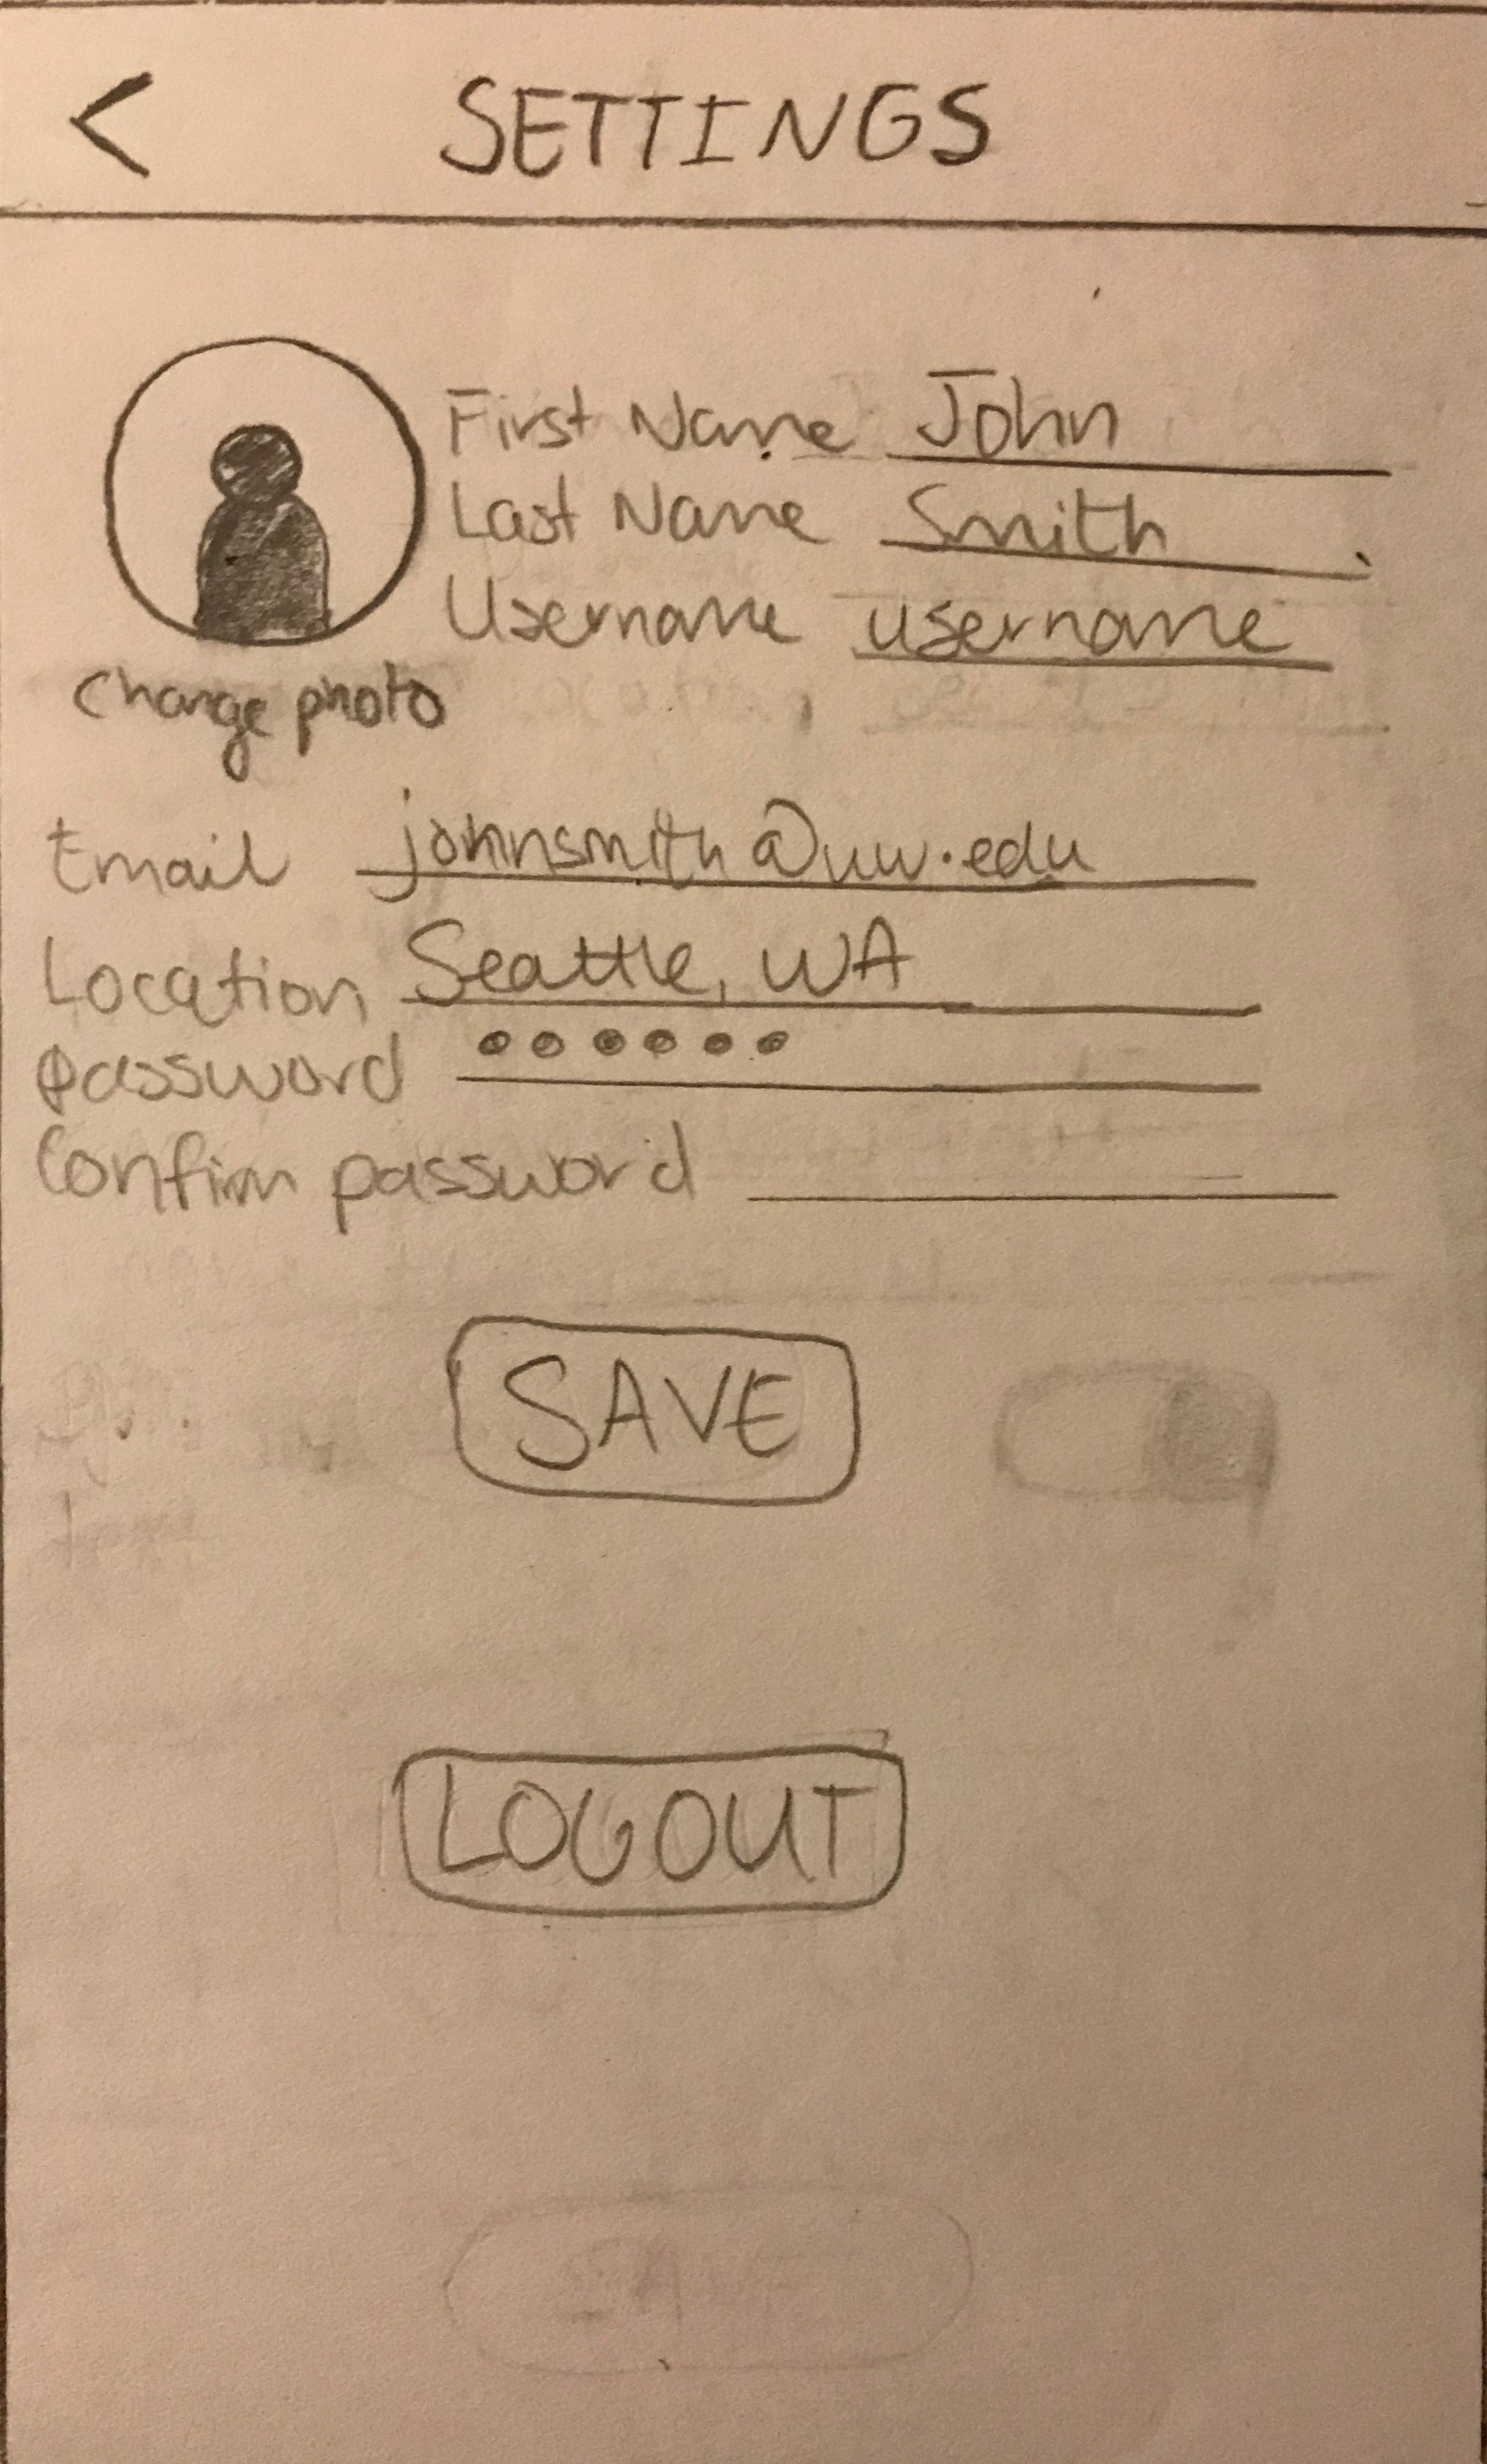 < SETTINGS
First Name John
Last Name Smith
Username username
change photo
Email johnsmith@uw.edu
Location Seattle, WA
Password ••••••
Confirm password
SAVE
LOGOUT